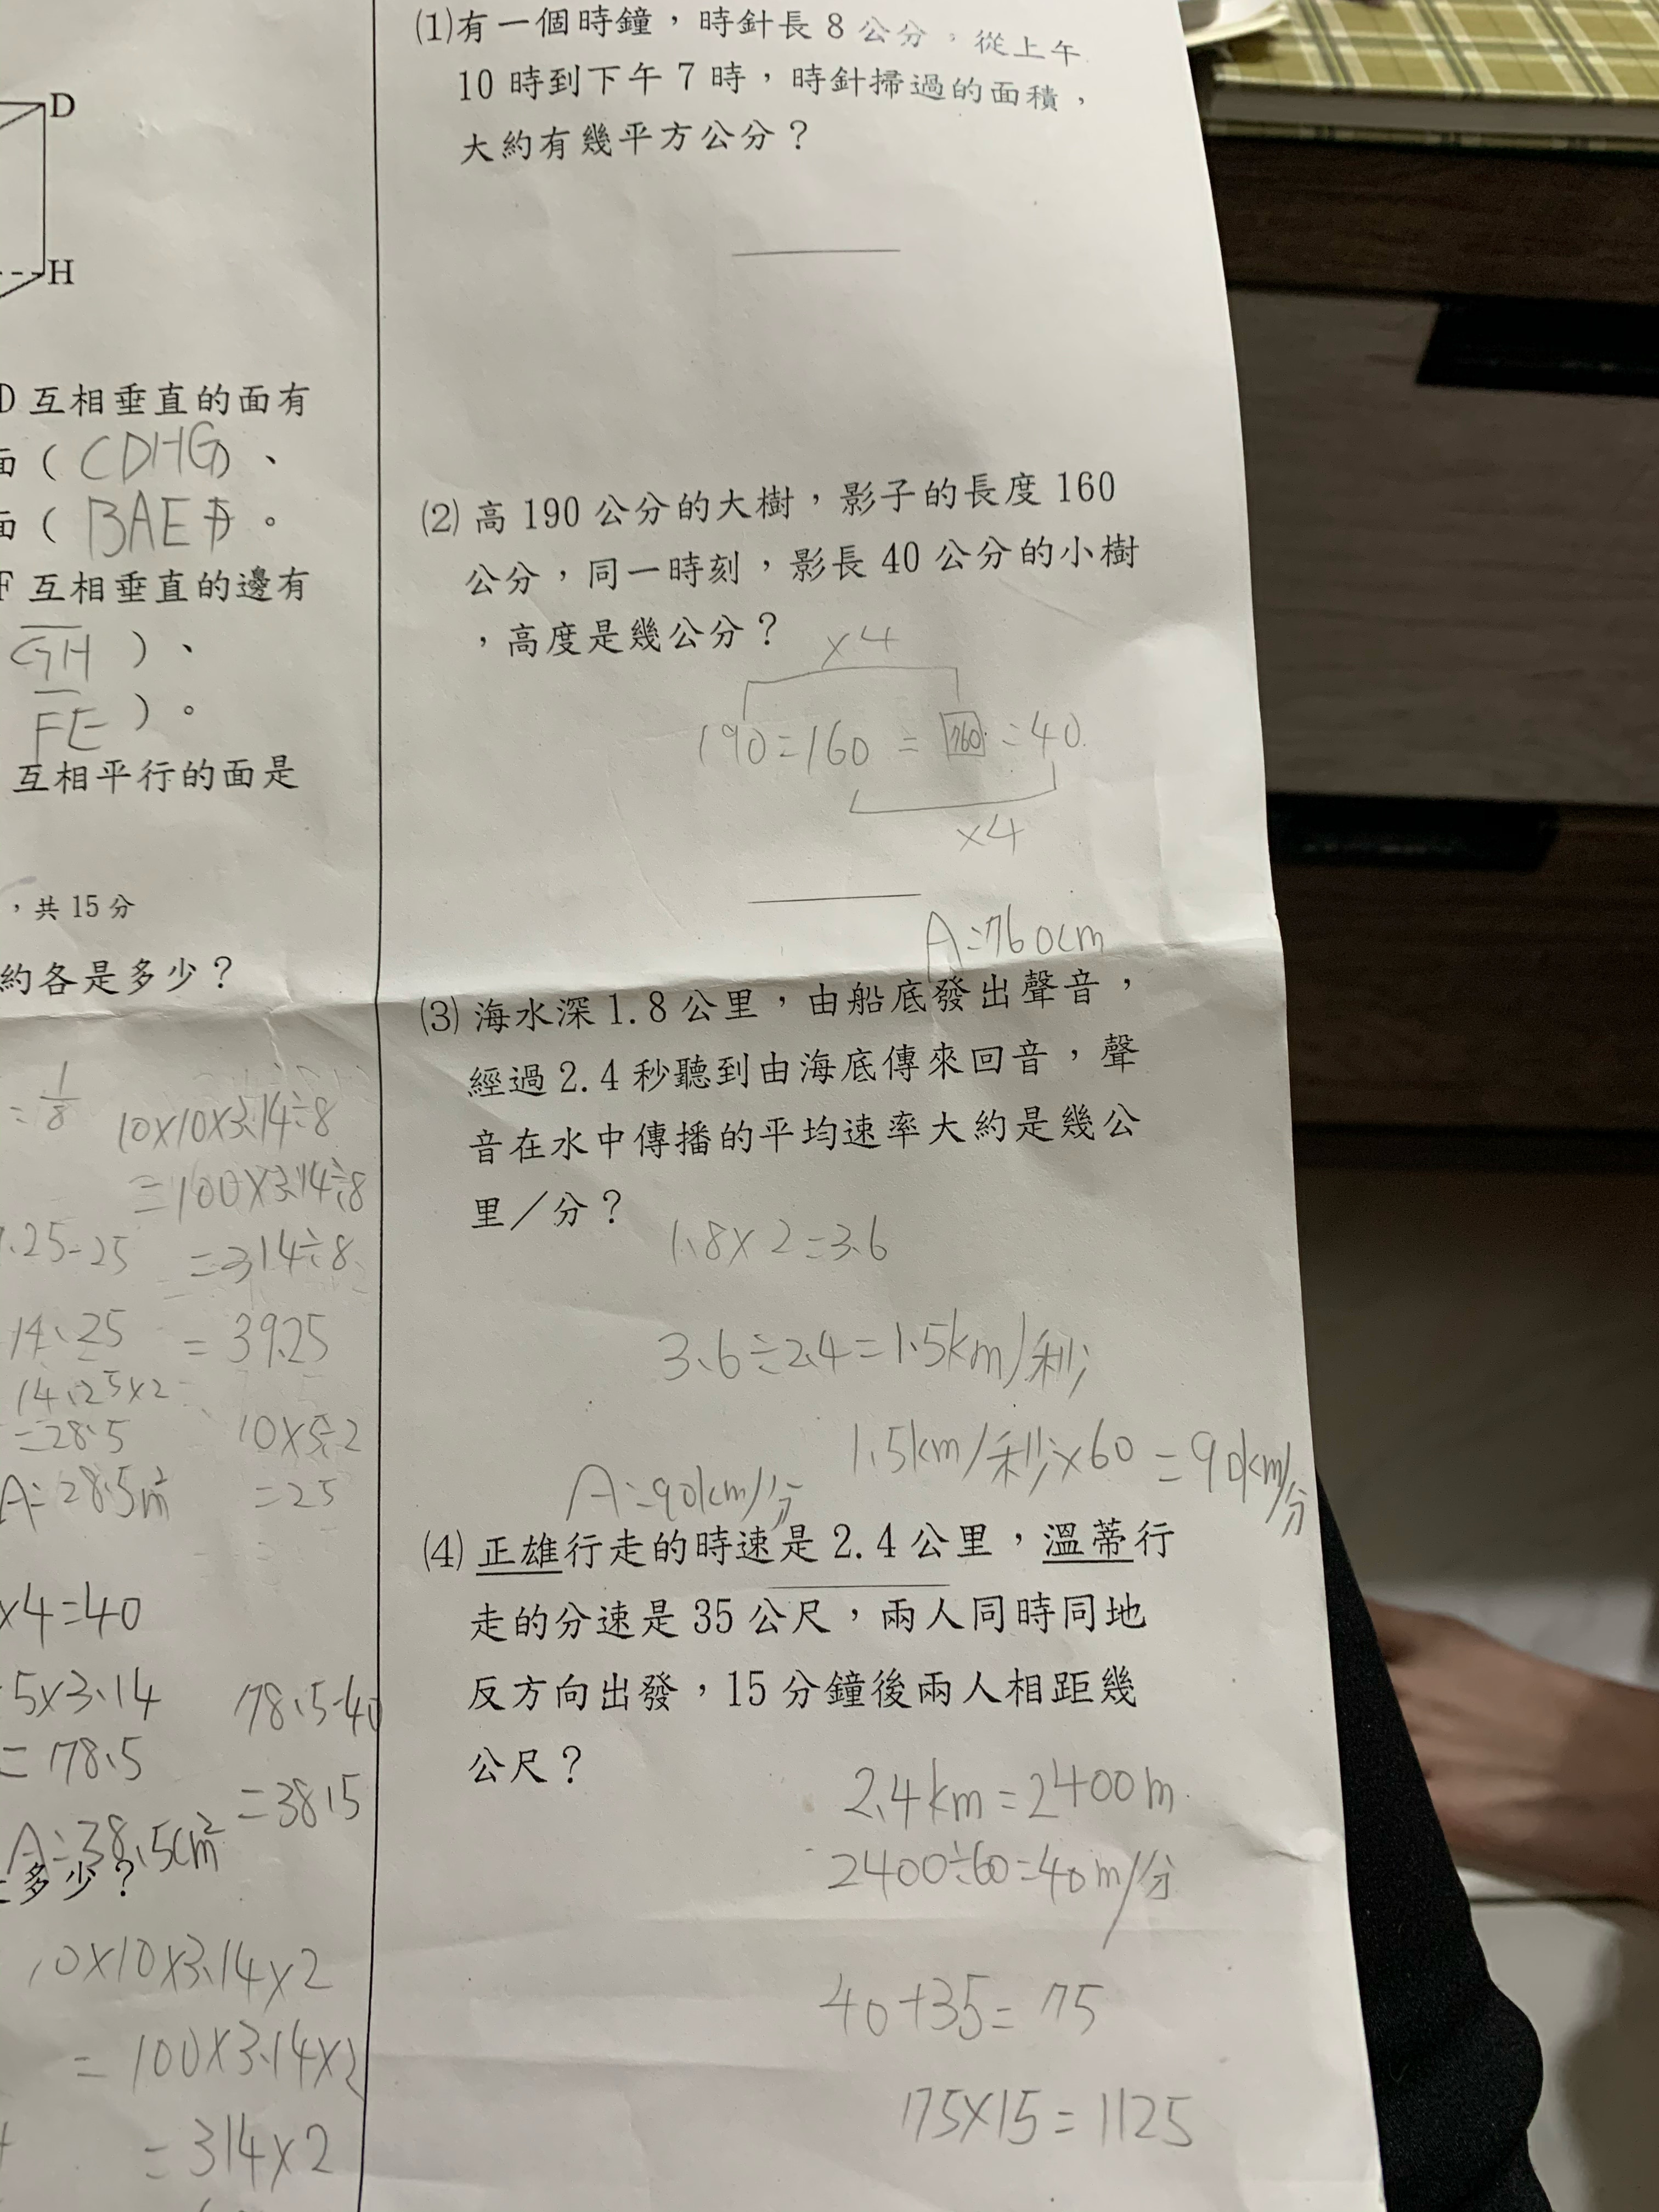 D
H
D 互相垂直的面有
面 ( CDHG ) 、
面 ( BAEF ) 。
F 互相垂直的邊有
GH ) 、
FE ) 。
互相平行的面是
，共 15 分
約各是多少？
= 1/8
10×10×3.14÷8
=100×3.14÷8
.25-25
=314÷8
14.25
= 39.25
14.25×2
=28.5
10×5÷2
A:28.5m²
=25
×4=40
5×3.14
78.5-40
= 78.5
=38.5
A:38.5cm²
多少？
10×10×3.14×2
= 100×3.14×2
= 314×2
(1)有一個時鐘，時針長 8 公分，從上午
10 時到下午 7 時，時針掃過的面積，
大約有幾平方公分？
(2) 高 190 公分的大樹，影子的長度 160
公分，同一時刻，影長 40 公分的小樹
，高度是幾公分？
×4
190:160 = 760 :40
×4
A:760cm
(3) 海水深 1.8 公里，由船底發出聲音，
經過 2.4 秒聽到由海底傳來回音，聲
音在水中傳播的平均速率大約是幾公
里／分？
1.8×2=3.6
3.6÷2.4=1.5km/秒
1.5km/秒×60 =90km/分
A:90km/分
(4) 正雄行走的時速是 2.4 公里，溫蒂行
走的分速是 35 公尺，兩人同時同地
反方向出發，15 分鐘後兩人相距幾
公尺？
2.4km=2400m
2400÷60=40m/分
40+35= 75
75×15=1125